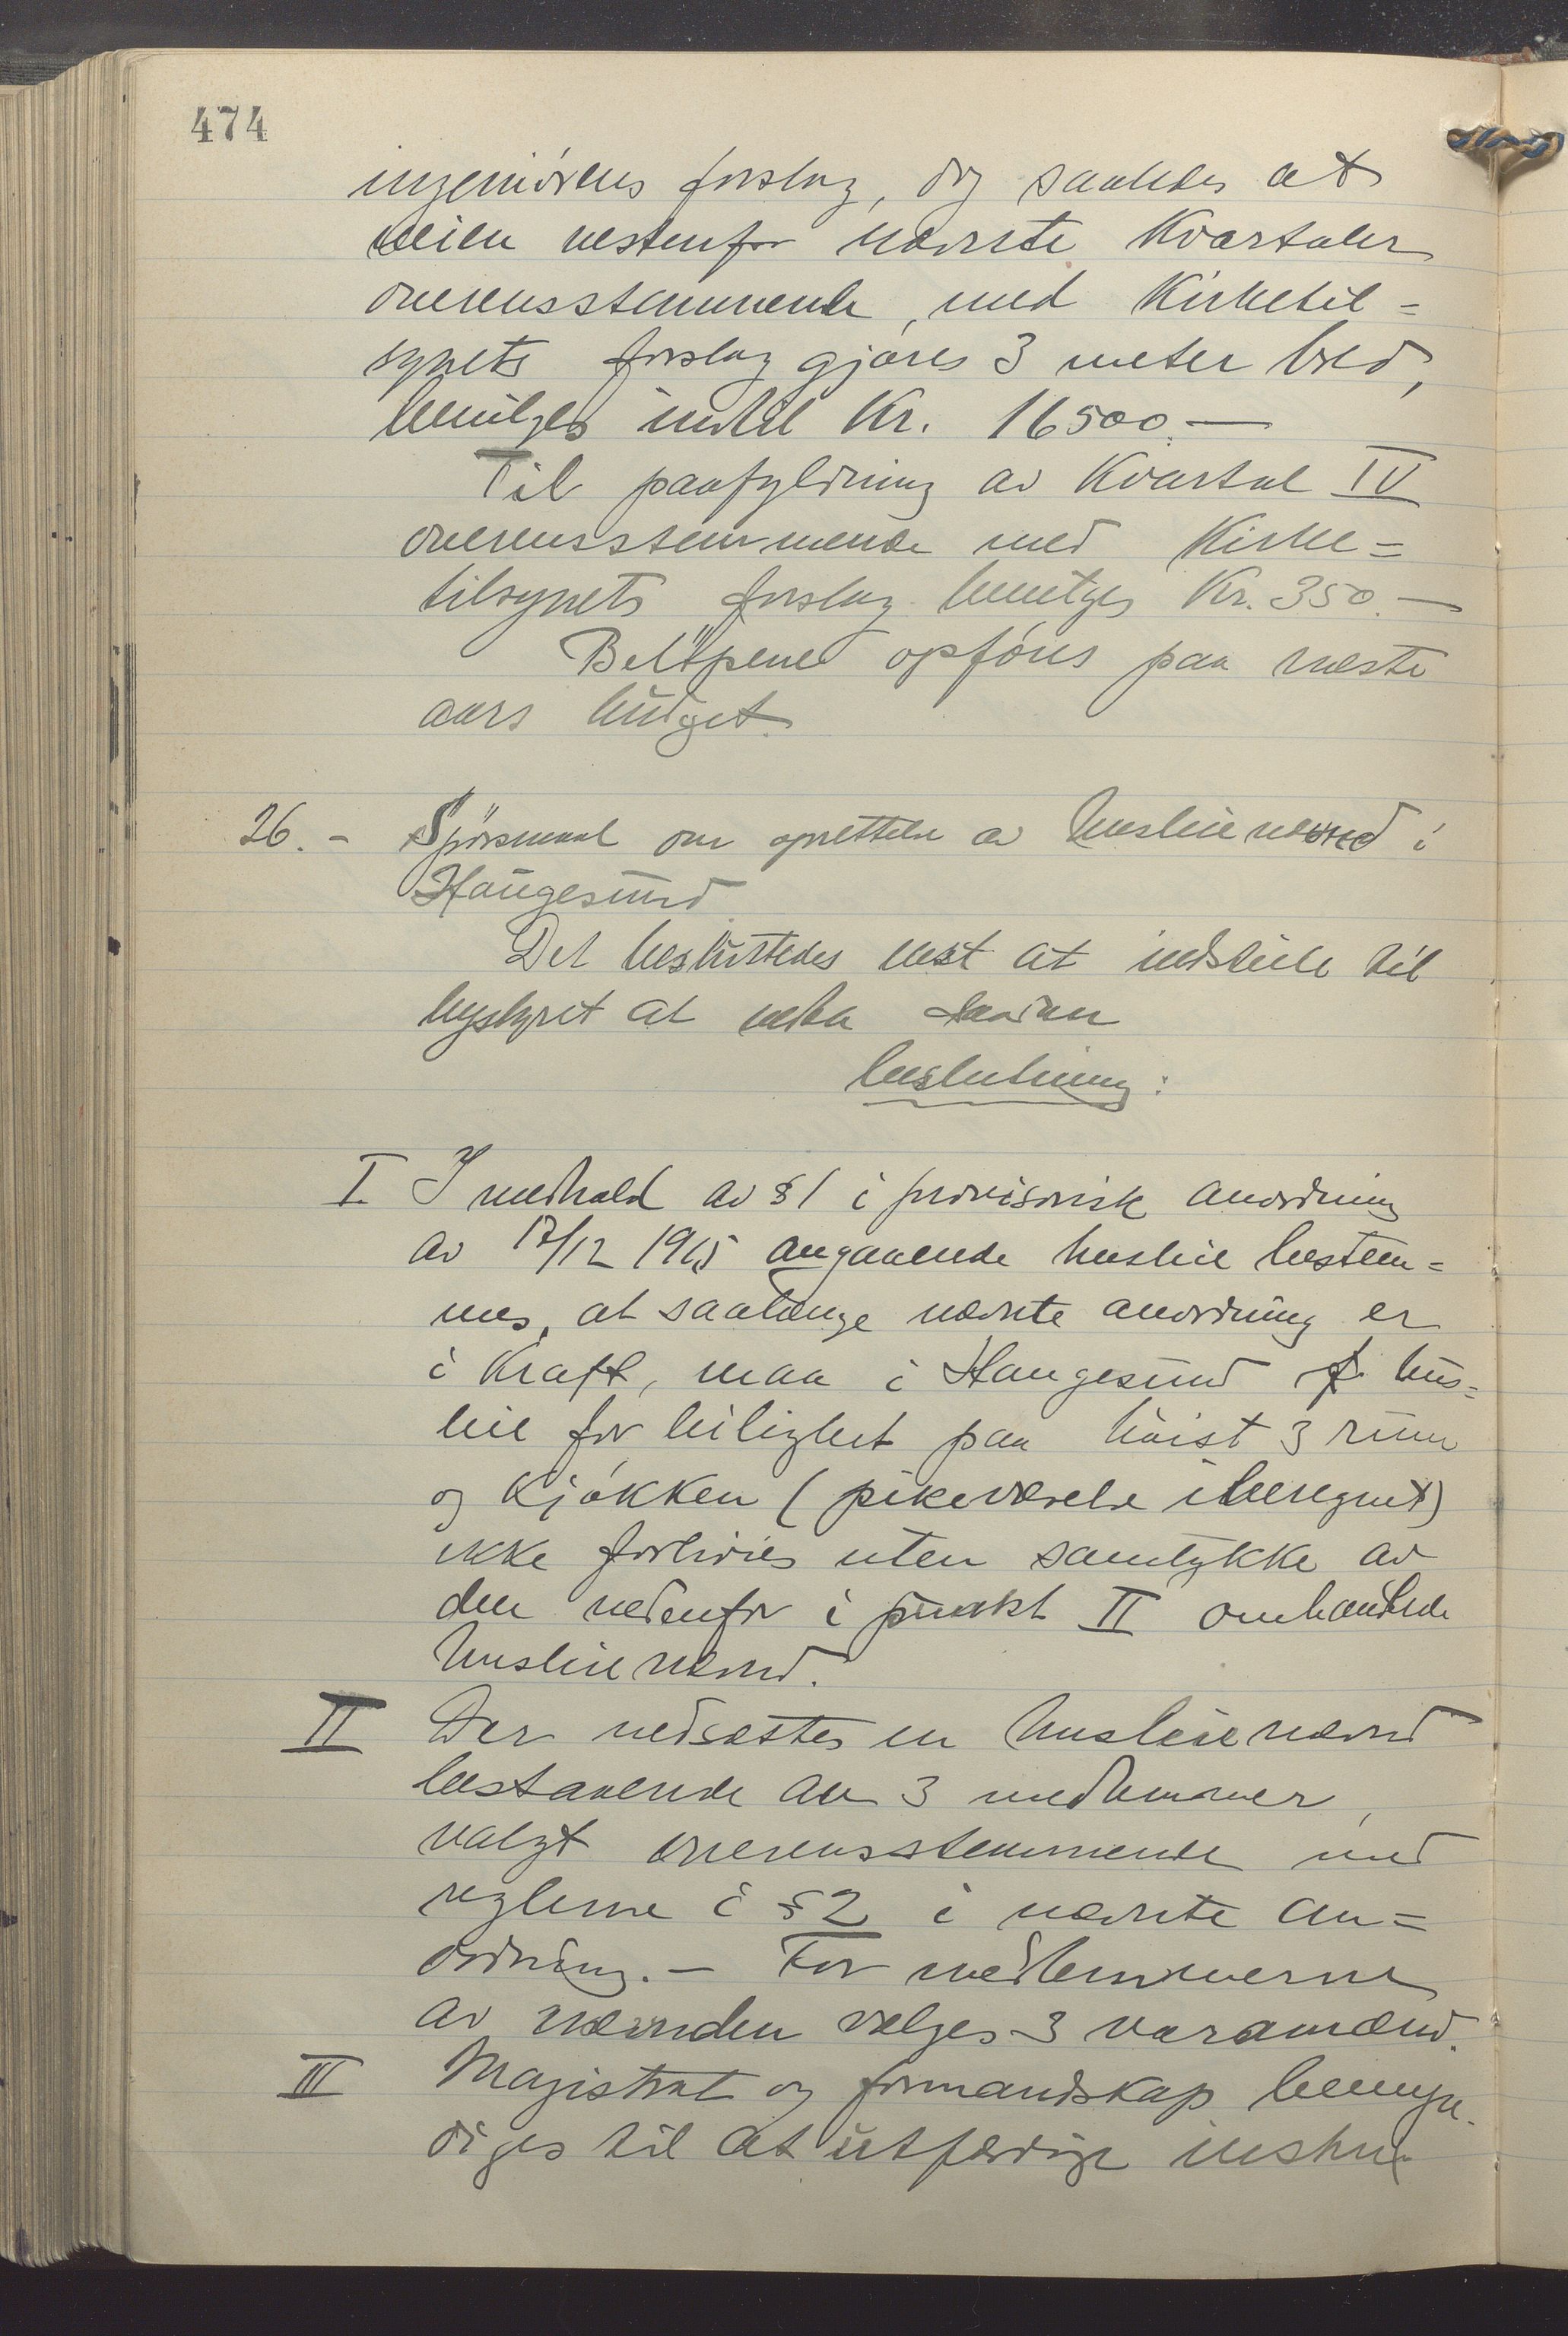 474
ingeniörens forslag, dog saaledes at
veien vestenfor nævnte Kvartaler
overensstemmende, med Kirketil=
synets forslag gjøres 3 meter bred,
bevilges indtil Kr. 16500.—
Til paafyldning av Kvartal IV
overensstemmende med Kirke=
tilsynets forslag bevilges Kr. 350.—
Belöpene opføres paa næste
aars budget.
26. - Spörsmaal om oprettelse av husleienævnd i
Haugesund
Det besluttedes enst at indstille til
bystyret at vedta saadan
beslutning:
I. I medhold av §1 i provisorisk anordning
av 17/12 1915 angaaende husleie bestem=
mes, at saalænge nævnte anordning er
i Kraft, maa i Haugesund hus=
leie for leilighet paa höist 3 rum
og Kjökken (pikeværelse iberegnet)
ikke forhöies uten samtykke av
den nedenfor i punkt II omhandlede
husleienævnd.
II Der nedsættes en husleienævnd
bestaaende av 3 medlemmer,
valgt overensstemmende med
reglerne i §2 i nævnte an=
ordning. — For medlemmerne
av nævnden vælges 3 varamænd.
III Magistrat og formandskap bemyn-
diges til at utfærdige instru-